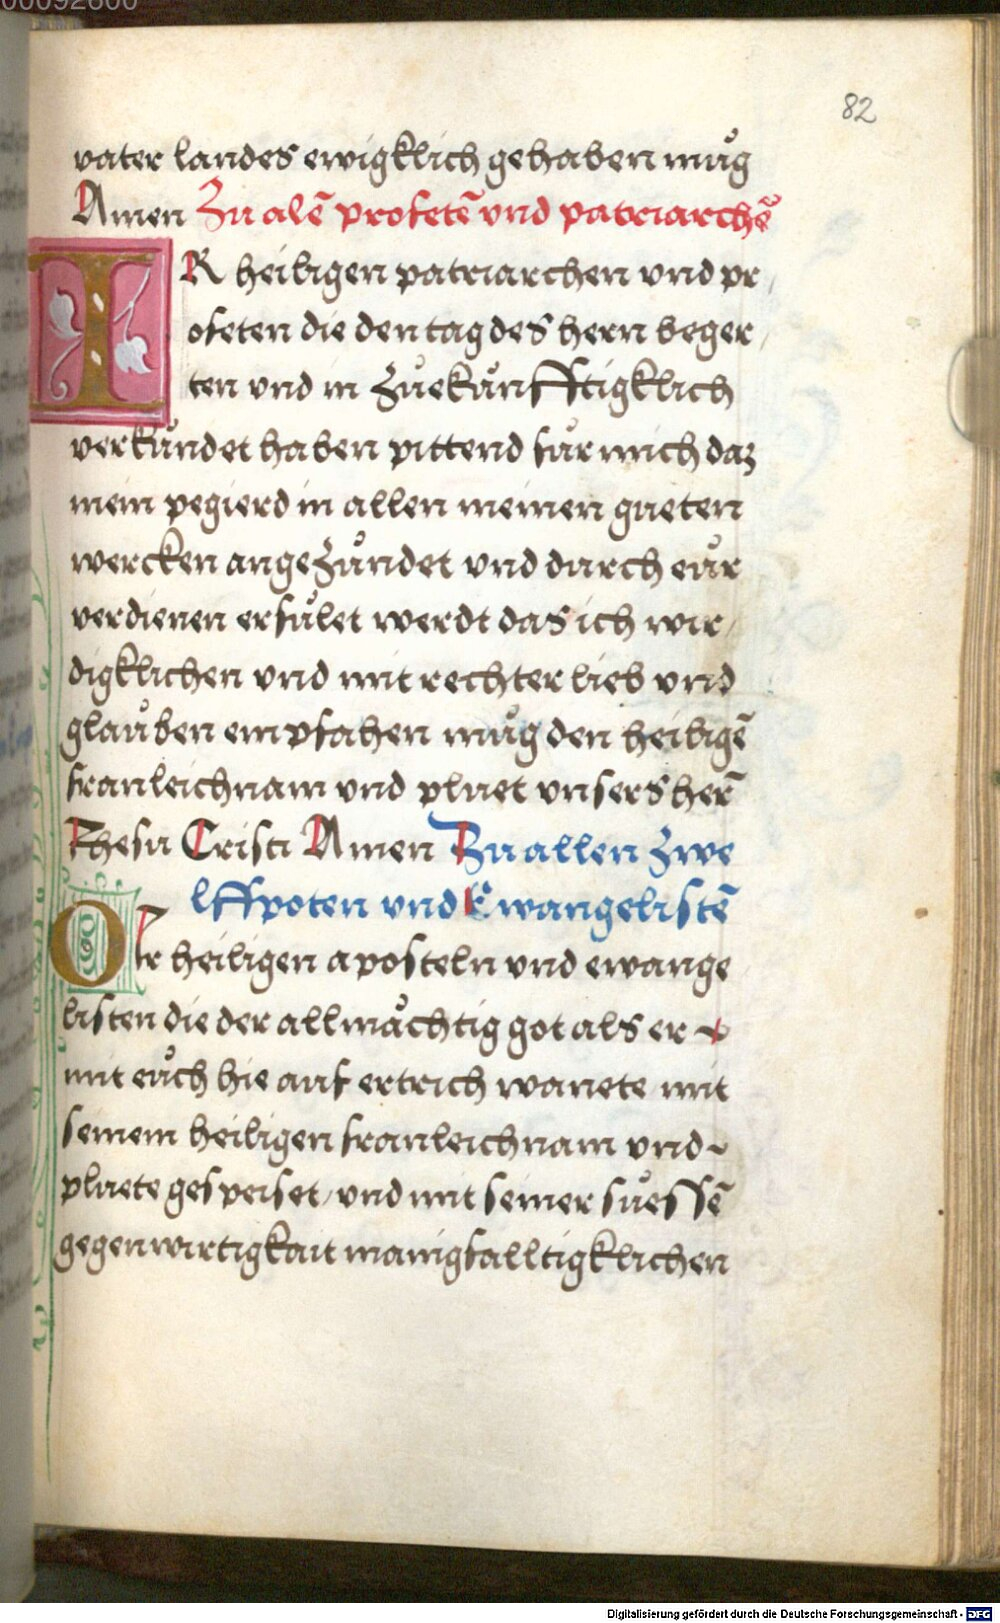 00092600
82
vater landes ewigklich gehaben műg
Amen Zu alē profetē vnd patriarchē
IR heiligen patriarchen vnd pr
ofeten die den tag des hern beger
ten vnd in zůekůnfftigklich
verkůndet haben pittend fůr mich daz
mein pegierd in allen meinen gueten
wercken angezůndet vnd durch eůr
verdienen erfůlet werdt das ich wir
digklichen vnd mit rechter lieb vnd
glaůben empfahen můg den heiligē
franleichnam vnd pluet vnsers herr̄
Jhesu Cristi Amen Zu allen zwe
lffpoten vnd Ewangelistē
O Ir heiligen aposteln vnd ewange
listen die der allmåchtig got als er
mit eůch hie auf ertrich wanete mit
seinem heiligen franleichnam vnd
pluete gespeiset vnd mit seiner sůessē
gegenwirtigkait manigfalltigklichen
Digitalisierung gefördert durch die Deutsche Forschungsgemeinschaft - DFG